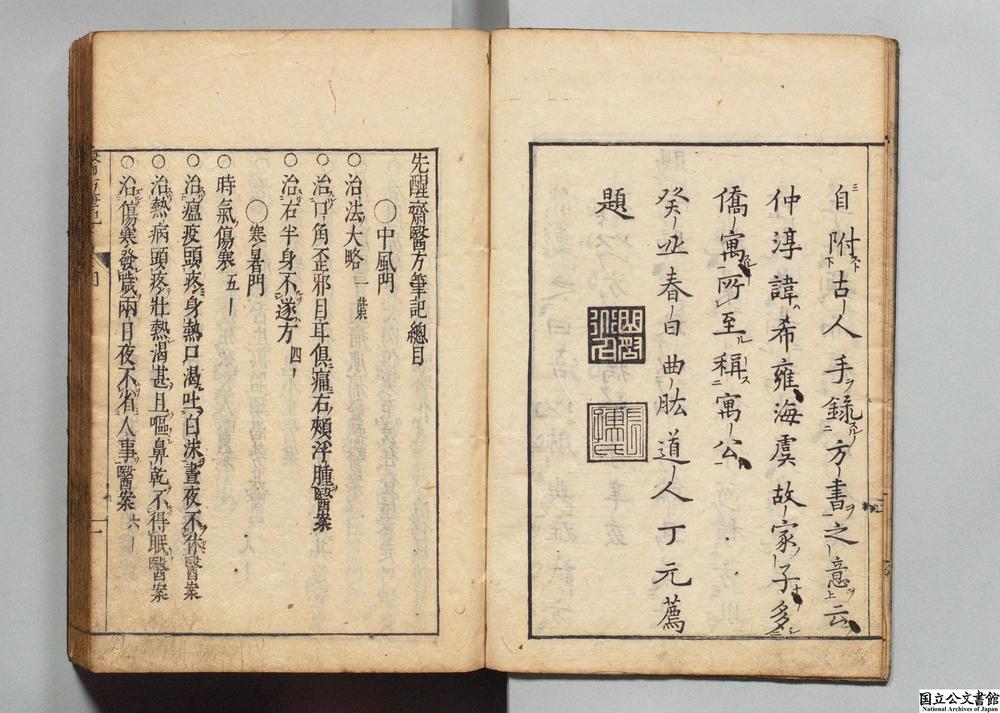 自附古人手錄方書之意云
仲淳諱希雍海虞故家子多
僑寓所至稱寓公
癸丑春日曲肱道人丁元薦
題
先醒齋醫方筆記總目
〇中風門
〇治法大略 一葉
〇治口角歪邪目耳俱痛右頰浮腫醫案
〇治右半身不遂方 四
〇寒暑門
〇時氣傷寒 五
〇治瘟疫頭疼身熱口渴吐白沫晝夜不休醫案
〇治熱病頭疼壯熱渴甚且嘔鼻乾不得眠醫案
〇治傷寒發歲兩日夜不省人事醫案 六
国立公文書館
National Archives of Japan